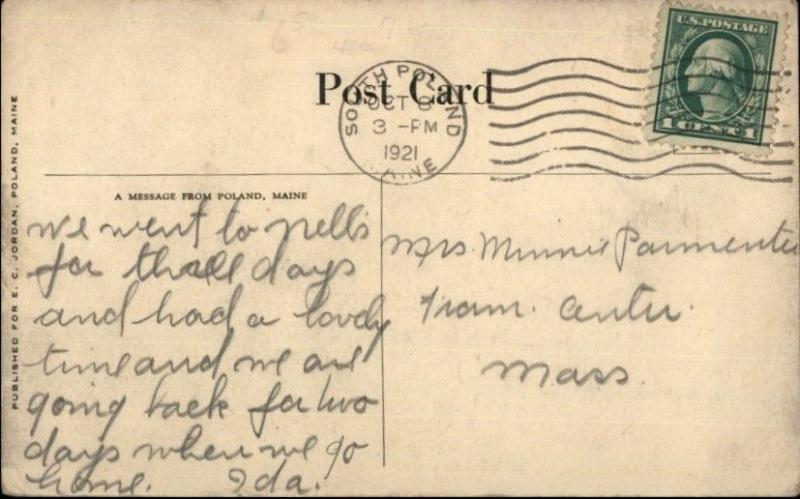 Post Card
SOUTH POLAND
OCT 8
3 - PM
1921
MAINE
U.S. POSTAGE
1 CENT 1
PUBLISHED FOR E. C. JORDAN, POLAND, MAINE
A MESSAGE FROM POLAND, MAINE
We went to Nells
for three days
and had a lovely
time and we are
going back for two
days when we go
home. Ida.
Mrs. Minnie Parmenter
Fram. Center.
Mass.